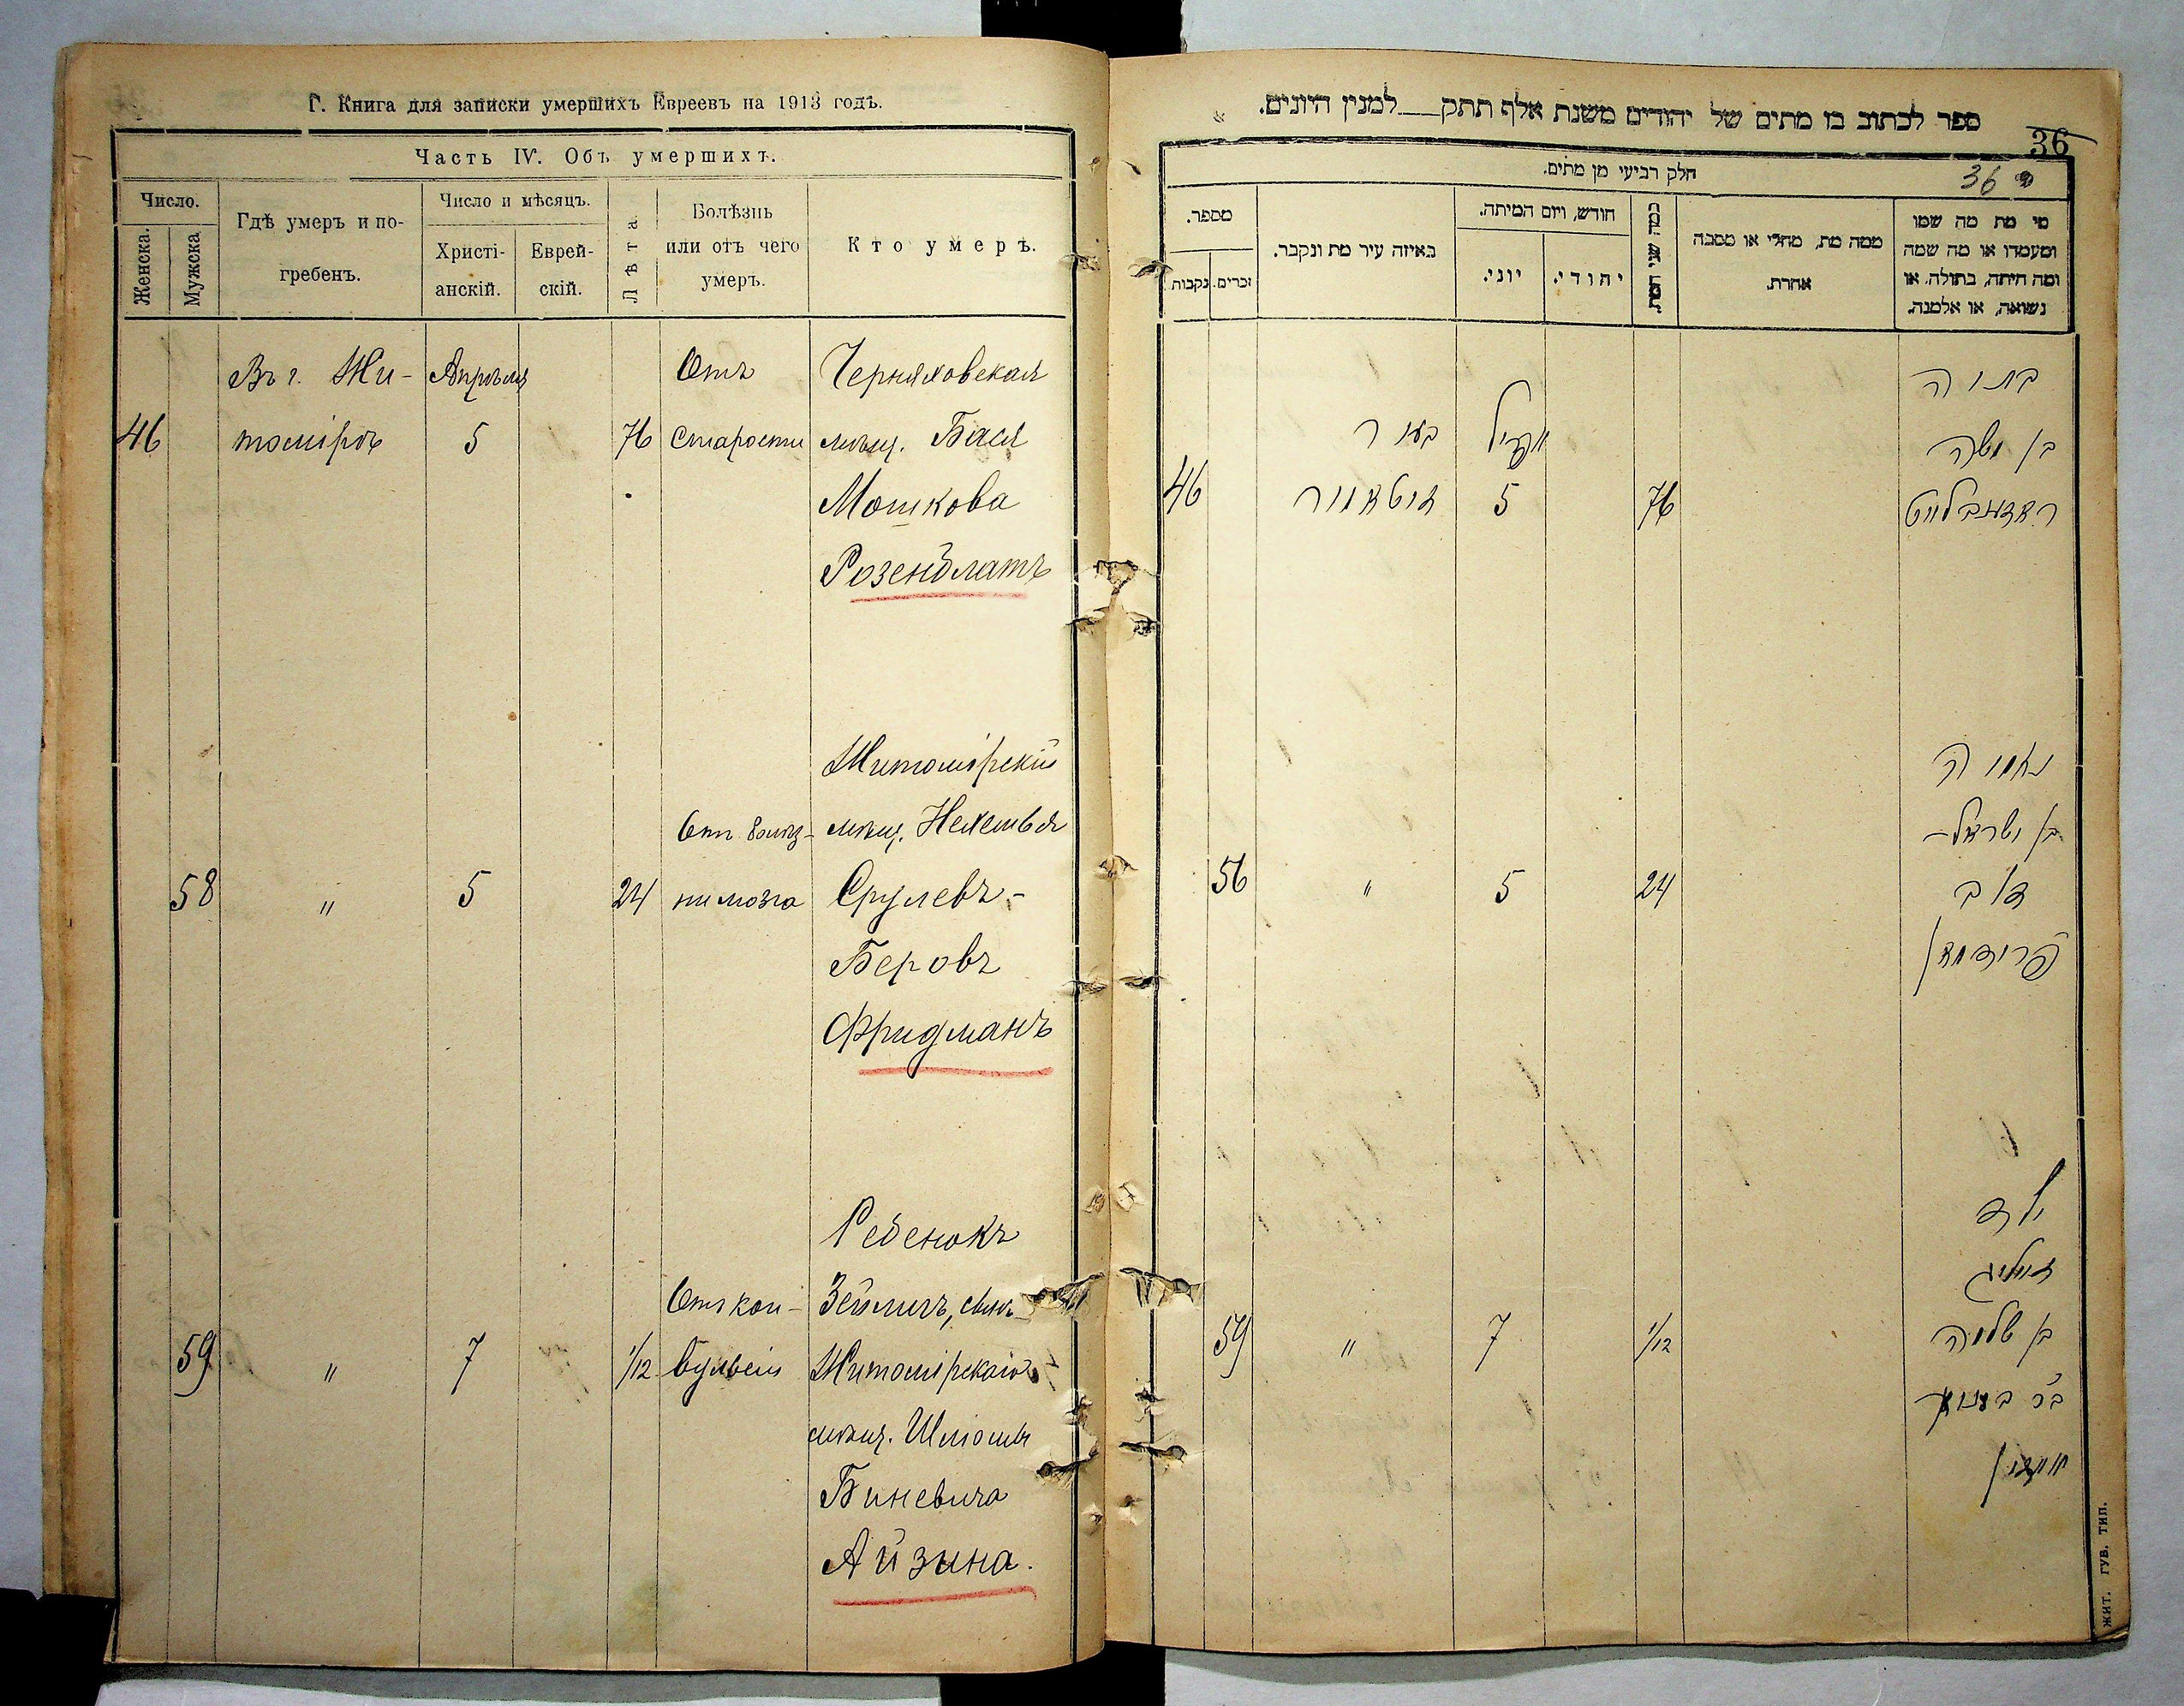 Г. Книга для записки умершихъ Евреевъ на 1913 годъ.
Часть IV. Объ умершихъ.
Число.
Женска.
Мужска
Гдѣ умеръ и по-
гребенъ.
Число и мѣсяцъ.
Христі-
анскій.
Еврей-
скій.
Лѣта
Болѣзнь
или отъ чего
умеръ.
Кто умеръ.
Въ г. Жи-
Апрѣля
Отъ
Черняховская
46
томірѣ
5
76
старости
мѣщ. Бася
Мошкова
Розенблатъ
Житомірскій
мѣщ. Нехемья
58
"
5
24
ни мозга
Срулевъ-
Беровъ
Фридманъ
Ребенокъ
Отъ кон-
Зейлигъ, сынъ
59
"
7
1/12
вульсіи
Житомірскаго
мѣщ. Шліомы
Биневича
Айзина.
ספר לכתוב בו מתים של יהודים משנת אלף תתק למנין היונים.
36
חלק רביעי מן מתים.
36
מספר.
נקבות
זכרים.
באיזה עיר מת ונקבר.
חודש, ויום המיתה.
יוני.
יהודי.
כמה שני המת.
ממה מת, מחלי או מסבה
אחרת.
מי מת מה שמו
ומעמדו או מה שמה
ומה היתה, בתולה, או
נשואה, או אלמנה.
בעיר
אפריל
46
זיטאמיר
5
76
בן ישראל-
56
"
5
24
דוב
פרידמאן
ילד
זעליג
59
"
7
1/12
בן שלמה
ЖИТ. ГУБ. ТИП.